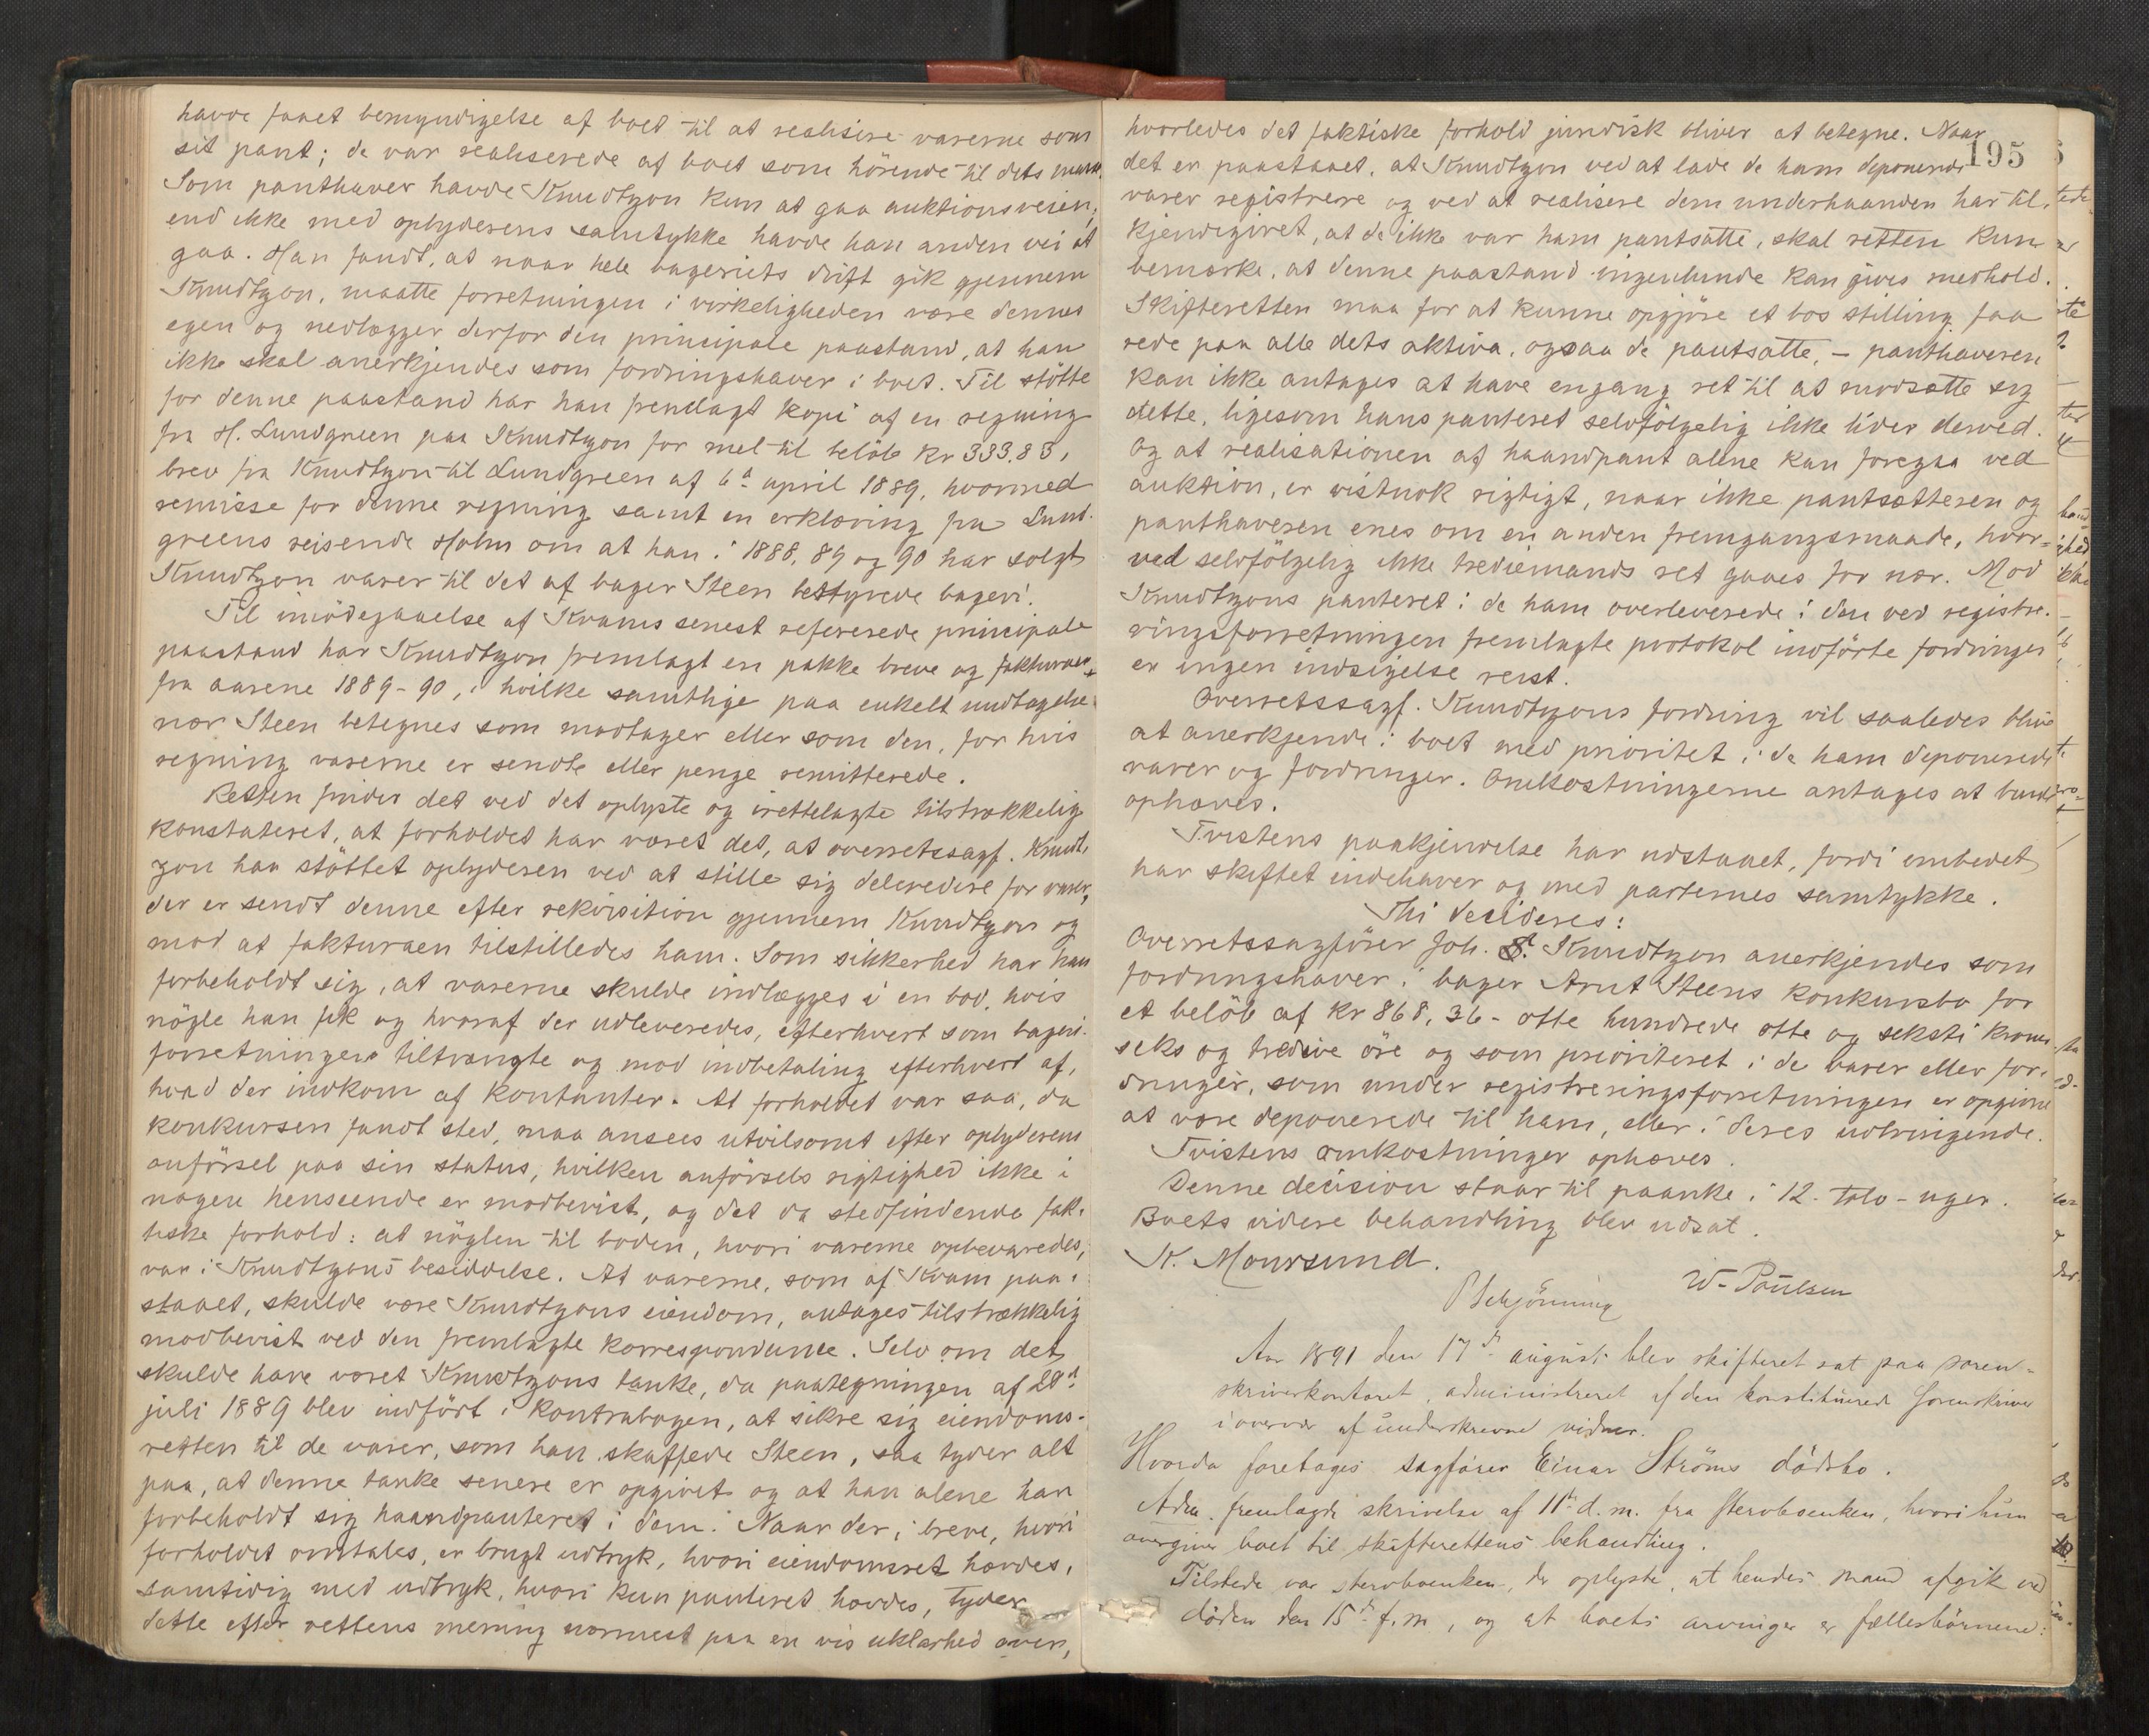 havde faaet bemyndigelse af boet til at realisere varerne som
sit pant; de var realiserede af boet som hörende til dets
Som panthaver havde Knudtzon kun at gaa auktionsveien;
end ikke med oplyderens samtykke havde han anden vei at
gaa. Han fandt, at naar hele bageriets drift gik gjennem
Knudtzon, maatte forretningen i virkeligheden være dennes
egen og nedlægger derfor den principale paastand, at han
ikke skal anerkjendes som fordringshaver i boet. Til stötte
for denne paastand har han fremlagt kopi af en regning
fra H. Lundgreen paa Knudtzon for mel til belöb kr 333.83,
brev fra Knudtzon til Lundgreen af 6te april 1889, hvormed
remisse for denne regning samt en erklæring fra Lund-
greens reisende Holm om at han i 1888, 89 og 90 har solgt
Knudtzon varer til det af bager Steen bestyrede bageri.
Til imödegaaelse af Kvams senest refererede principale
paastand har Knudtzon fremlagt en pakke breve og fakturaer
fra aarene 1889-90, i hvilke samtlige paa enkelt undtagelse
nær Steen betegnes som modtager eller som den, for hvis
regning varerne er sendte eller penge remitterede.
Retten finder det ved det oplyste og irettelagte tilstrækkelig
konstateret, at forholdet har været det, at overretssagf. Knudt-
zon har stöttet oplyderen ved at stille sig delcredere for varer,
der er sendt denne efter rekvisition gjennem Knudtzon og
mod at fakturaen tilstilledes ham. Som sikkerhed har han
forbeholdt sig, at varerne skulde indlægges i en bod, hvis
nögle han fik og hvoraf der udleveredes, efterhvert som bageri-
forretningen tiltrængte og mod indbetaling efterhvert af,
hvad der indkom af kontanter. At forholdet var saa, da
konkursen fandt sted, maa ansees utvilsomt efter oplyderens
anförsel paa sin status, hvilken anförsels rigtighed ikke i
nogen henseende er modbevist, og det da stedfindende fak-
tiske forhold: at nöglen til boden, hvori varerne opbevaredes,
var i Knudtzons besiddelse. At varerne, som af Kvam paa-
staaet, skulde være Knudtzons eiendom, antages tilstrækkelig
modbevist ved den fremlagte korrespondance. Selv om det
skulde have været Knudtzons tanke, da paategningen af 29de
juli 1889 blev indfört i kontrabogen, at sikre sig eiendoms-
retten til de varer, som han skaffede Steen, saa tyder alt
paa, at denne tanke senere er opgivet og at han alene har
forbeholdt sig haandpanteret i dem. Naar der i breve, hvori
forholdet omtales, er brugt udtryk, hvori eiendomsret hævdes,
samtidig med udtryk, hvori kun panteret hævdes, tyder
dette efter rettens mening nærmest paa en vis uklarhed over,
195
hvorledes det faktiske forhold juridisk bliver at betegne. Naar
det er paastaaet, at Knudtzon ved at lade de ham deponerede
varer registrere og ved at realisere dem underhaanden har til-
kjendegivet, at de ikke var ham pantsatte, skal retten kun
bemærke, at denne paastand ingenlunde kan gives medhold.
Skifteretten maa for at kunne opgjöre et bos stilling faa
rede paa alle dets aktiva, ogsaa de pantsatte, - panthaveren
kan ikke antages at have engang ret til at modsætte sig
dette, ligesom hans panteret selvfölgelig ikke lider derved.
Og at realisationen af haandpant alene kan foregaa ved
auktion, er vistnok rigtigt, naar ikke pantsætteren og
panthaveren enes om en anden fremgangsmaade, hvor-
ved selvfölgelig ikke trediemands ret gaaes for nær. Mod
Knudtzons panteret i de ham overleverede i den ved registre-
ringsforretningen fremlagte protokol indförte fordringer
er ingen indsigelse reist.
Overretssagf. Knudtzons fordring vil saaledes blive
at anerkjende i boet med prioritet i de ham deponerede
varer og fordringer. Omkostningerne antages at burde
ophæves.
Tvistens paakjendelse har udstaaet, fordi embedet
har skiftet indehaver og med parternes samtykke.
Thi decideres:
Overretssagförer Joh. Knudtzon anerkjendes som
fordringshaver i bager Arnt Steens konkursbo for
et belöb af kr 868,36 - otte hundrede otte og seksti kroner
seks og tredive öre og som prioriteret i de varer eller for-
dringer, som under registreringsforretningen er opgivne
at være deponerede til ham, eller i deres udbringende.
Tvistens omkostninger ophæves.
Denne decision staar til paanke i 12 - tolv - uger.
Boets videre behandling blev udsat.
K. Moursund.
W. Paulsen
Schjönning
Aar 1891 den 17de august blev skifteret sat paa soren-
skriverkontoret, administreret af den konstituerede sorenskriver
i overvær af underskrevne vidner.
Hvorda foretages sagförer Einar Ströms dödsbo.
Adm. fremlagde skrivelse af 11te d.m. fra sterbboenken, hvori hun
overgiver boet til skifterettens behandling.
Tilstede var sterbboenken, der oplyste, at hendes mand afgik ved
döden den 15de f.m., og at boets arvinger er fællesbörnene: